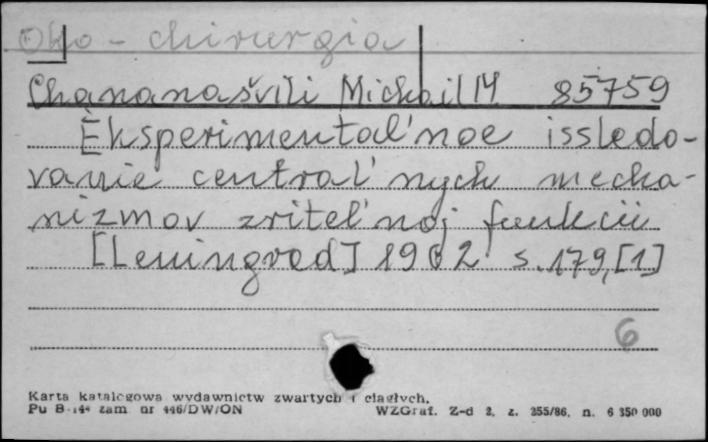 Oko - chirurgia
Chananašvili Michail M 85759
Èksperimental'noe issledo-
vanie central'nych mecha-
nizmov zritel'noj funkcii
[Leningrad] 1962 s. 179,[1]
6
Karta katalogowa wydawnictw zwartych i ciągłych.
Pu B-144 zam nr 446/DW/ON WZGraf. Z-d 2, z. 255/86, n. 6 350 000